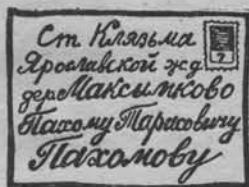 Ст. Клязьма
Ярославской жд
дер Максимково
Пахому Тарасовичу
Пахомову